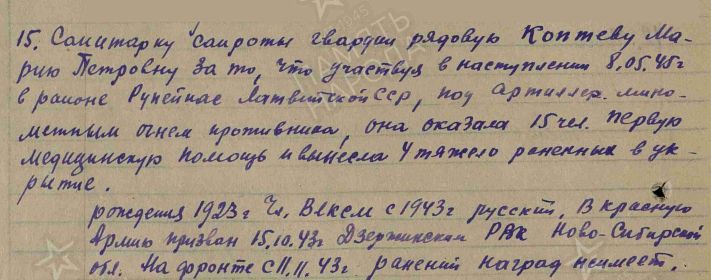 15. Санитарку санроты гвардии рядовую Коптеву Ма-
рию Петровну за то, что участвуя в наступлении 8.05.45г
в районе Рупейкас Латвийской ССР, под артиллер. мино-
метным огнем противника, она оказала 15 чел. первую
медицинскую помощь и вынесла 4 тяжело раненных в ук-
рытие.
рождения 1923г Чл. ВЛКСМ с 1943г русский, В Красную
Армию призван 15.10.43г Дзержинским РВК Ново-Сибирской
обл. На фронте с 11.11.43г. ранений наград неимеет.